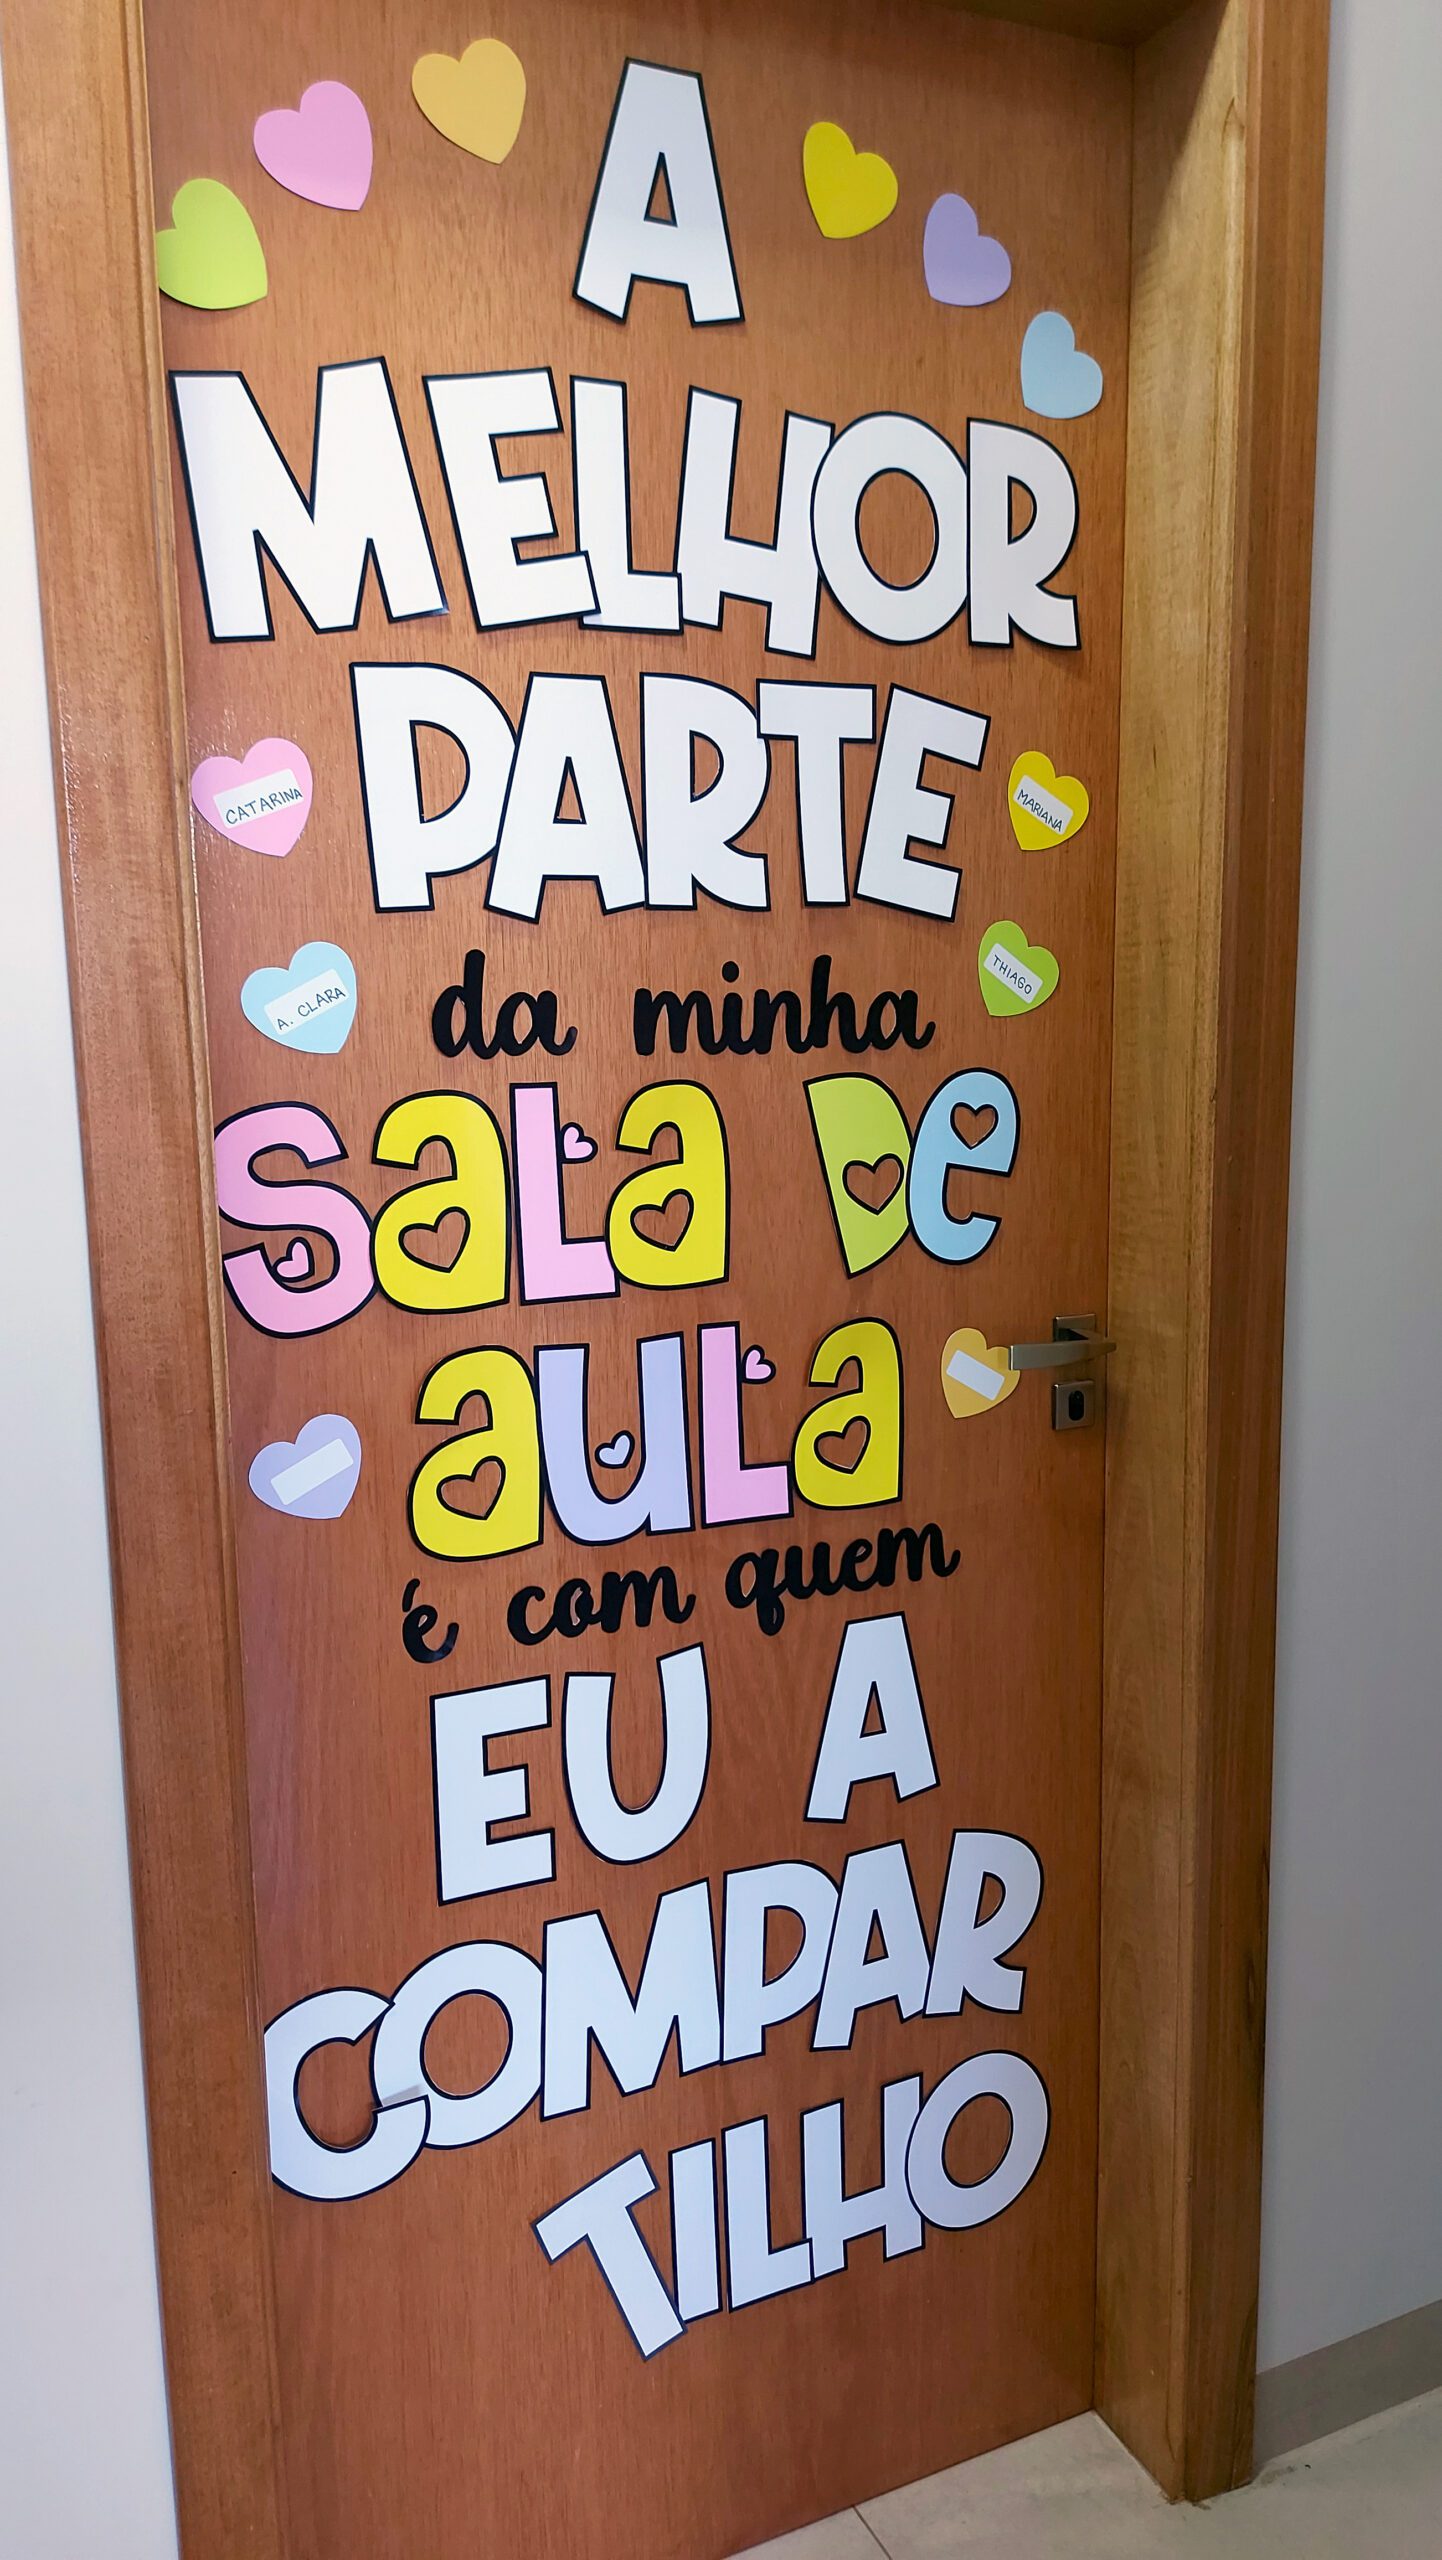 A
MELHOR
PARTE
CATARINA
MARIANA
A. CLARA
THIAGO
da minha
SaLa De
auLa
é com quem
EU A
COMPAR
TILHO